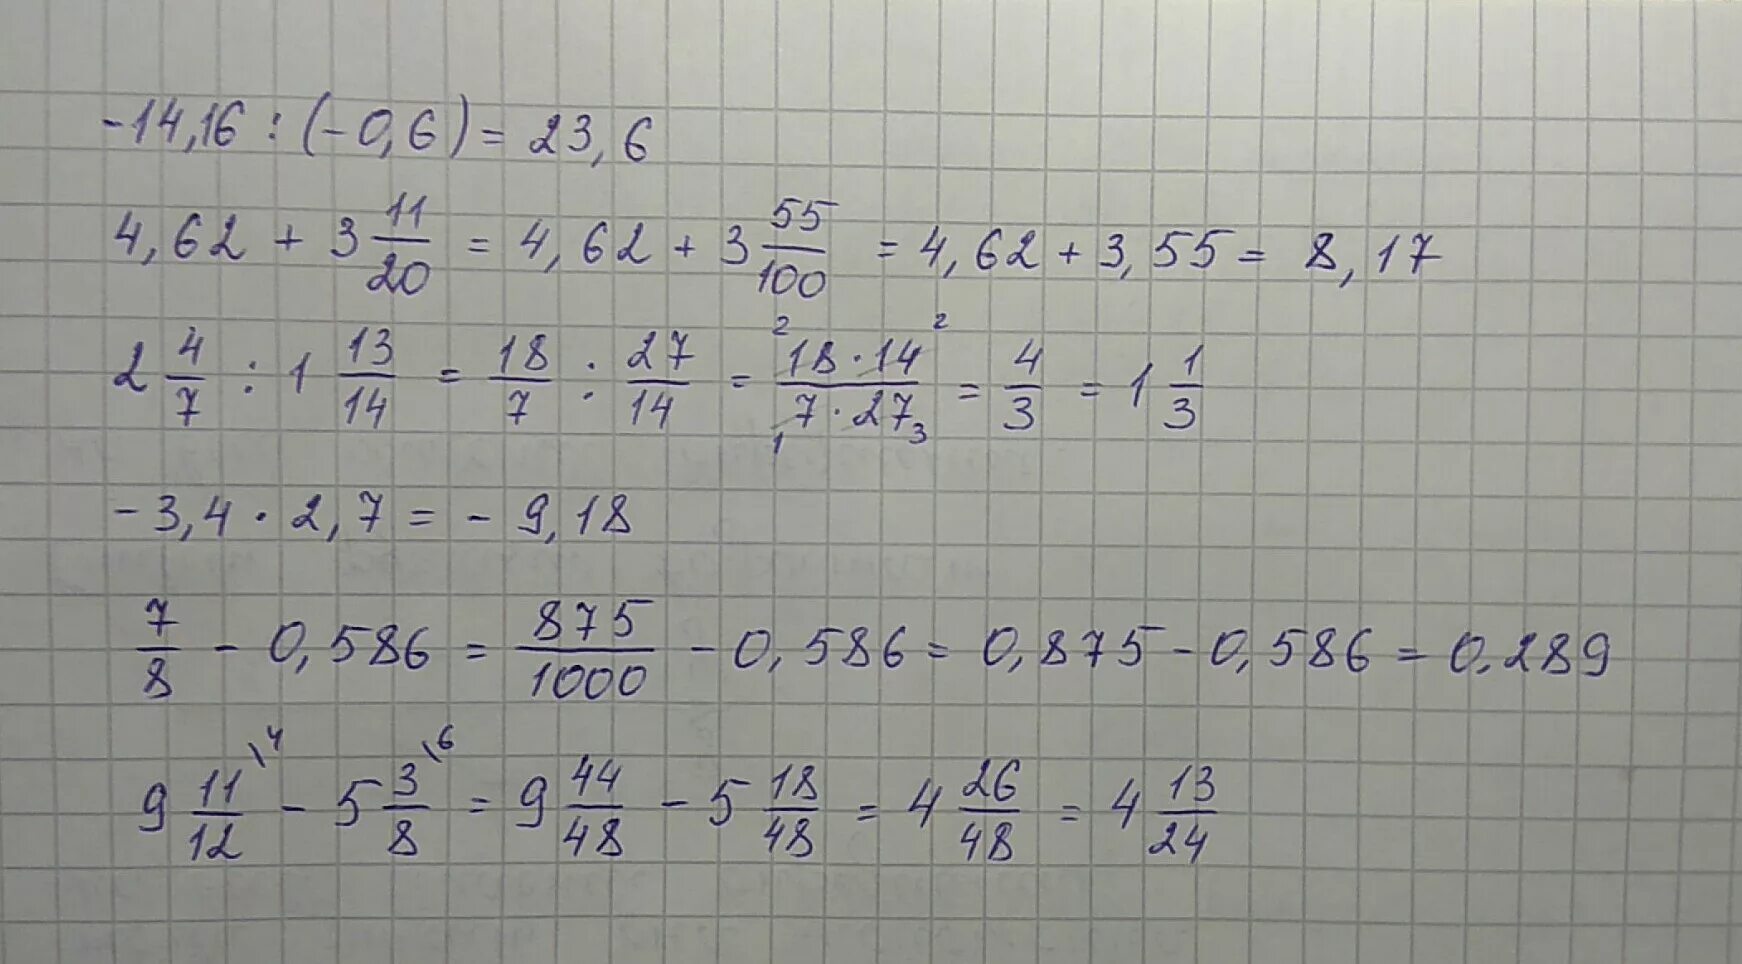 -14,16 : (-0,6) = 23,6
4,62 + 3 11/20 = 4,62 + 3 55/100 = 4,62 + 3,55 = 8,17
2 4/7 : 1 13/14 = 18/7 : 27/14 = 2 18 · 14 2 / 1 7 · 27 3 = 4/3 = 1 1/3
-3,4 · 2,7 = -9,18
7/8 - 0,586 = 875/1000 - 0,586 = 0,875 - 0,586 = 0.289
9 11/12 \4 - 5 3/8 \6 = 9 44/48 - 5 18/48 = 4 26/48 = 4 13/24